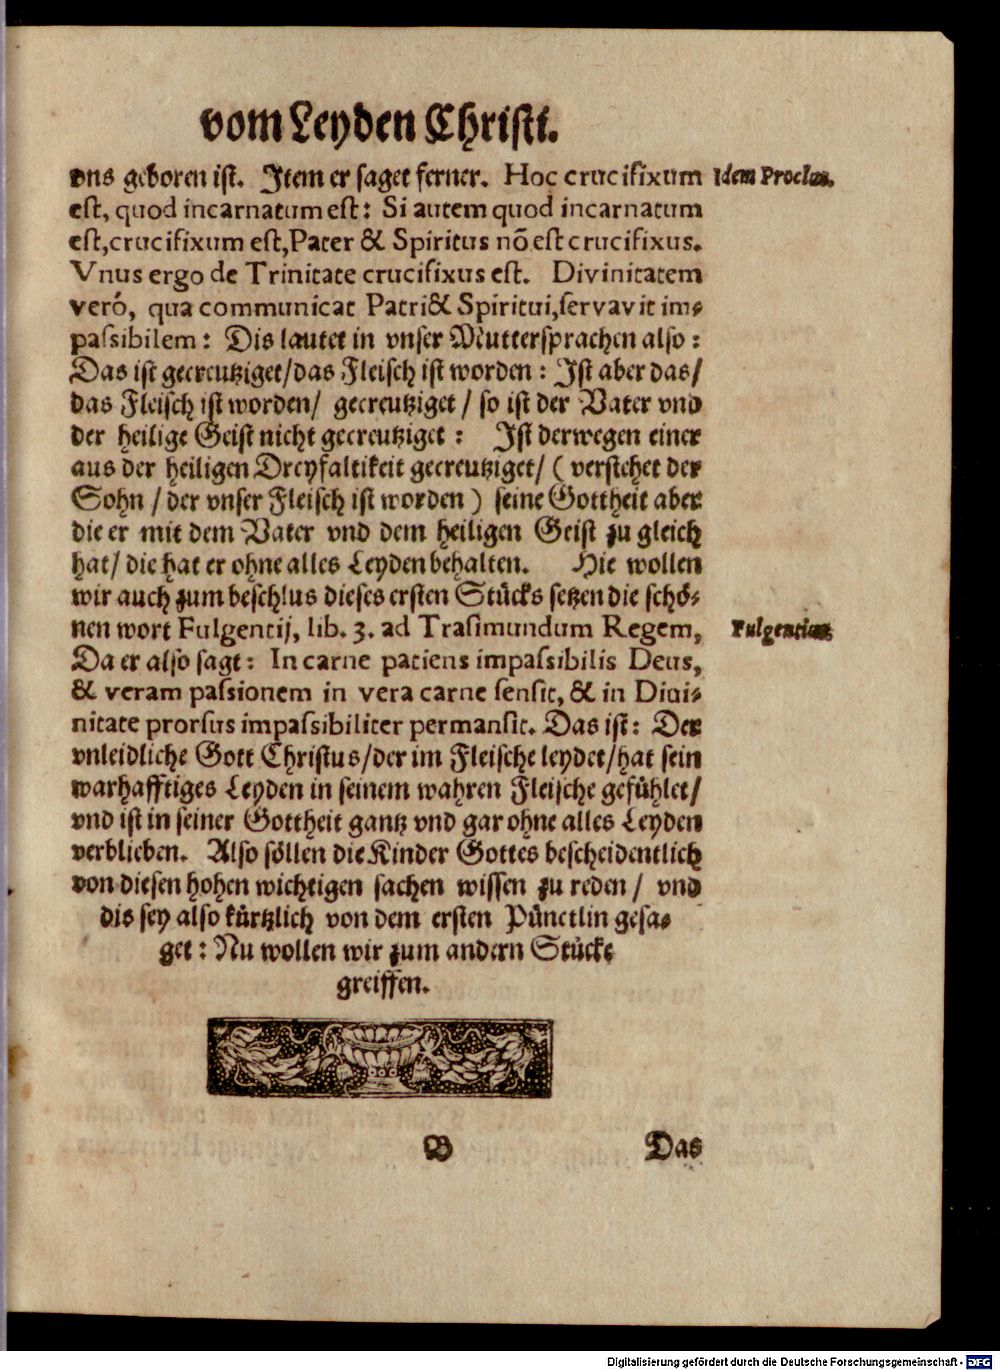 vom Leyden Christi.
vns geboren ist. Item er saget ferner. Hoc crucifixum
Idem Proclus.
est, quod incarnatum est: Si autem quod incarnatum
est,crucifixum est,Pater & Spiritus nõ est crucifixus.
Vnus ergo de Trinitate crucifixus est. Divinitatem
veró, qua communicat Patri & Spiritui,servavit im⸗
passibilem: Dis lautet in vnser Muttersprachen also:
Das ist gecreutziget/das Fleisch ist worden: Ist aber das/
das Fleisch ist worden/ gecreutziget / so ist der Vater vnd
der heilige Geist nicht gecreutziget: Ist derwegen einer
aus der heiligen Dreyfaltikeit gecreutziget/ ( verstehet der
Sohn / der vnser Fleisch ist worden ) seine Gottheit aber
die er mit dem Vater vnd dem heiligen Geist zu gleich
hat/ die hat er ohne alles Leyden behalten. Hie wollen
wir auch zum beschlus dieses ersten Stücks setzen die schö⸗
nen wort Fulgentij, lib. 3. ad Trasimundum Regem,
Fulgentius.
Da er also sagt: In carne patiens impassibilis Deus,
& veram passionem in vera carne sensit, & in Diui⸗
nitate prorsus impassibiliter permansit. Das ist: Der
vnleidliche Gott Christus/der im Fleische leydet/hat sein
warhafftiges Leyden in seinem wahren Fleische gefühlet/
vnd ist in seiner Gottheit gantz vnd gar ohne alles Leyden
verblieben. Also söllen die Kinder Gottes bescheidentlich
von diesen hohen wichtigen sachen wissen zu reden / vnd
dis sey also kürtzlich von dem ersten Pünctlin gesa⸗
get: Nu wollen wir zum andern Stücke
greiffen.
B
Das
Digitalisierung gefördert durch die Deutsche Forschungsgemeinschaft - DFG